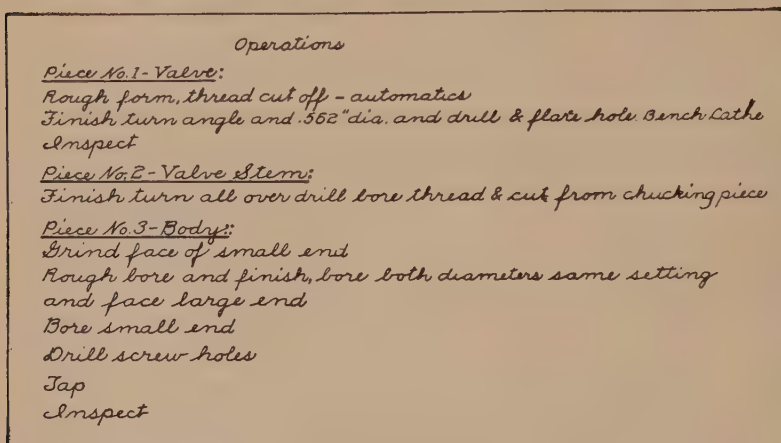 Operations
Piece No.1-Valve:
Rough form, thread cut off - automatics
Finish turn angle and .562" dia. and drill & flare hole. Bench Lathe
Inspect
Piece No.2-Valve Stem:
Finish turn all over drill bore thread & cut from chucking piece
Piece No.3-Body:
Grind face of small end
Rough bore and finish, bore both diameters same setting
and face large end
Bore small end
Drill screw holes
Tap
Inspect